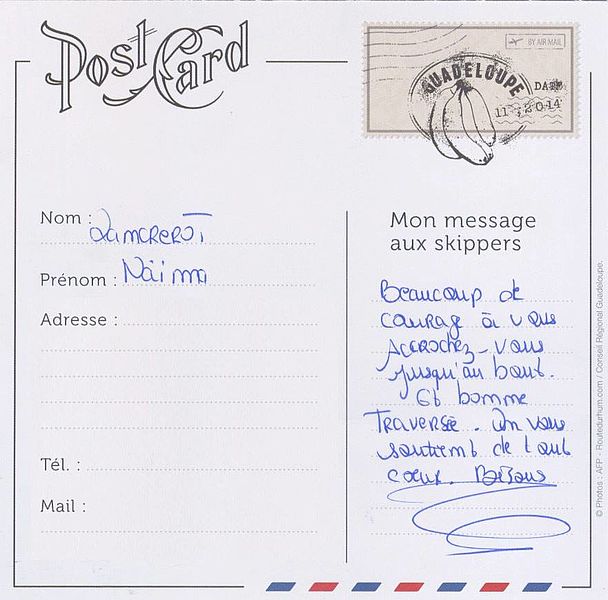 Post Card
BY AIR MAIL
GUADELOUPE
DATE
11 2014
Nom : Lamcrerot
Prénom : Näima
Adresse :
Tél. :
Mail :
Mon message
aux skippers
Beaucoup de
courage à vous
Accrochez-vous
jusqu'au bout.
Et bomme
Traversée. On vous
soutiemt de tout
coeur. Bisous
© Photos : AFP - Routedurhum.com / Conseil Régional Guadeloupe.